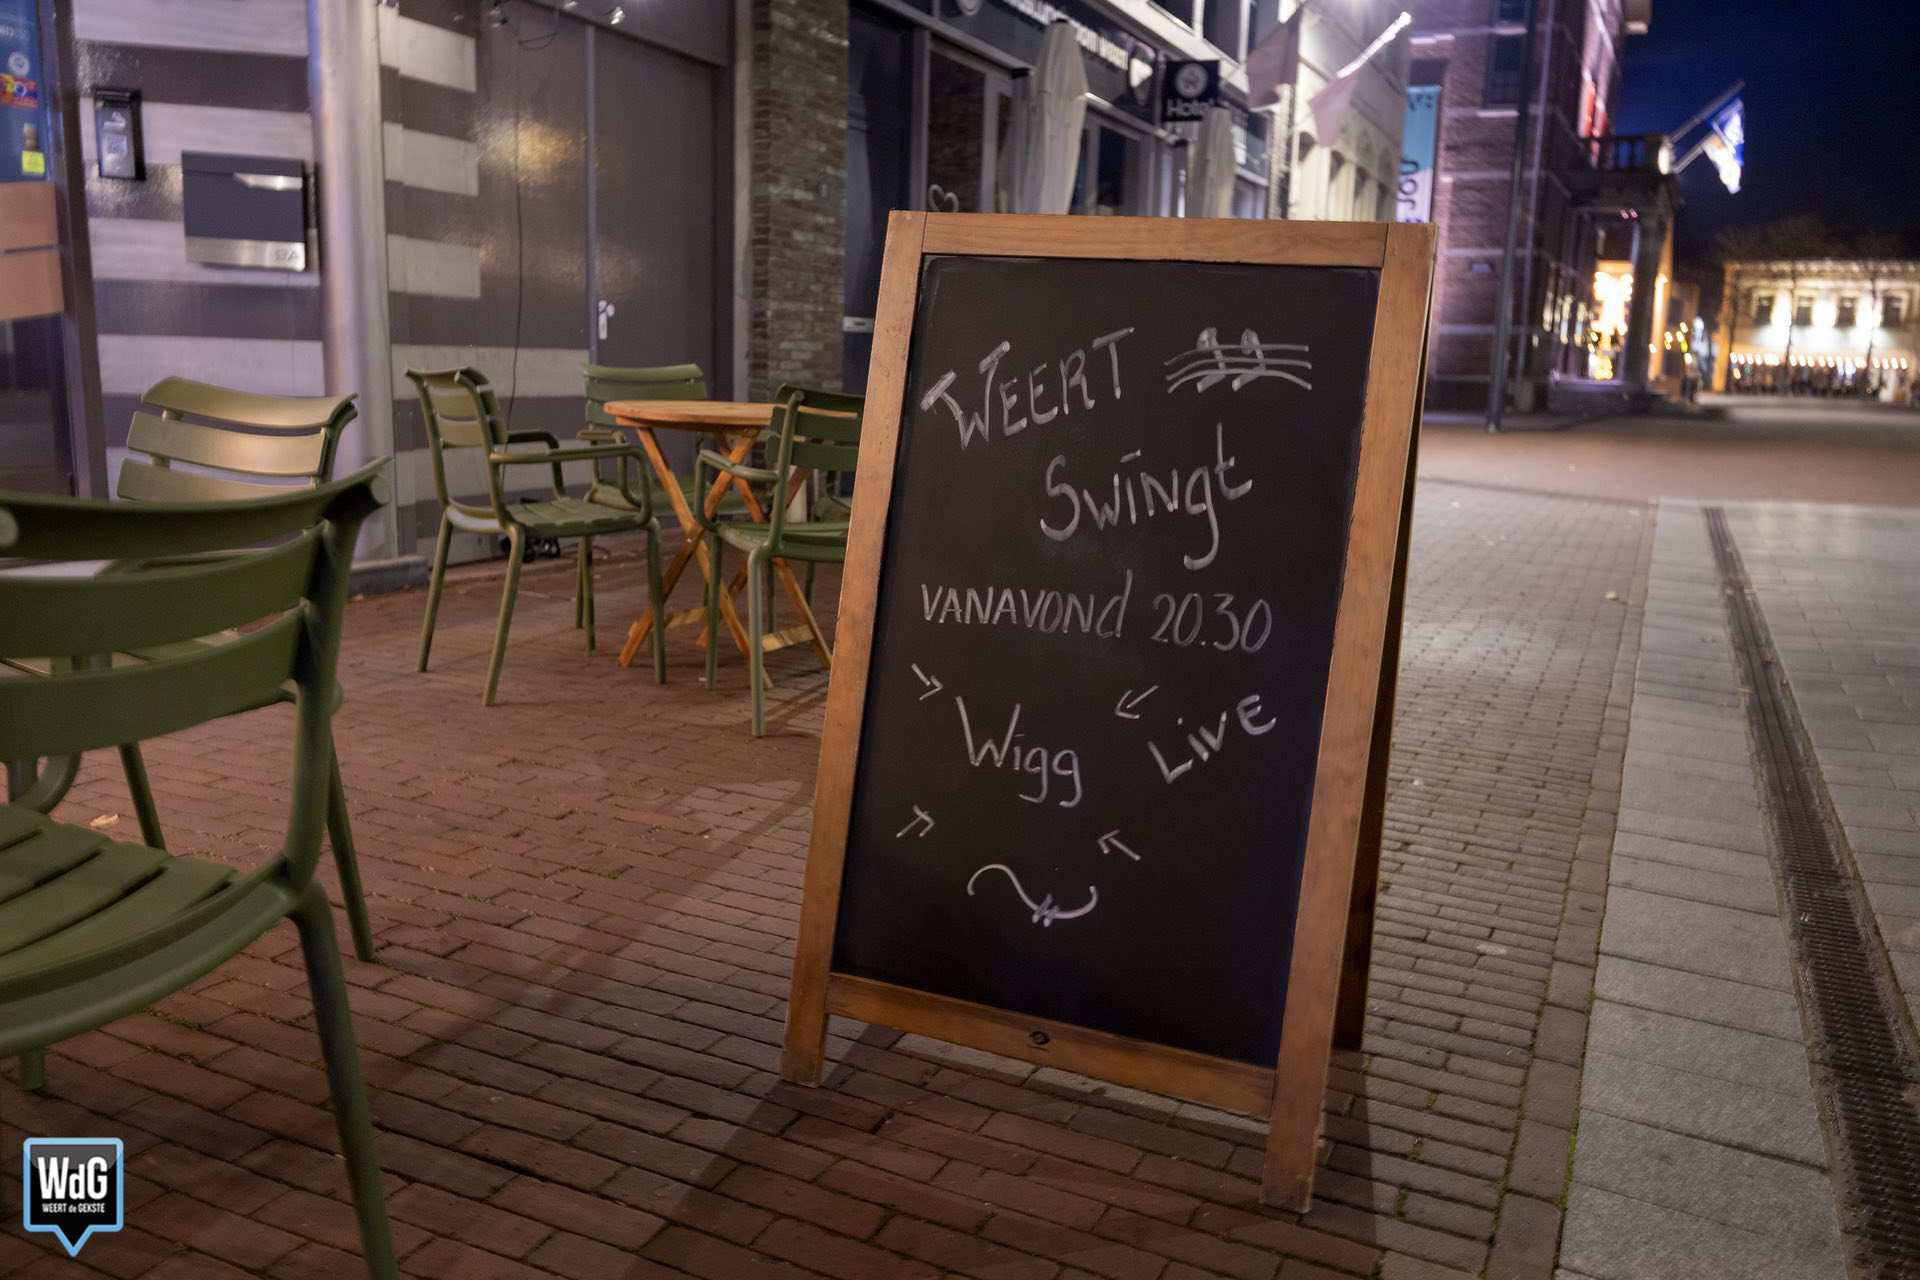 WEERT
Swingt
VANAVOND 20.30
Wigg
LIVE
Hotel
8A
WdG
WEERT de GEKSTE